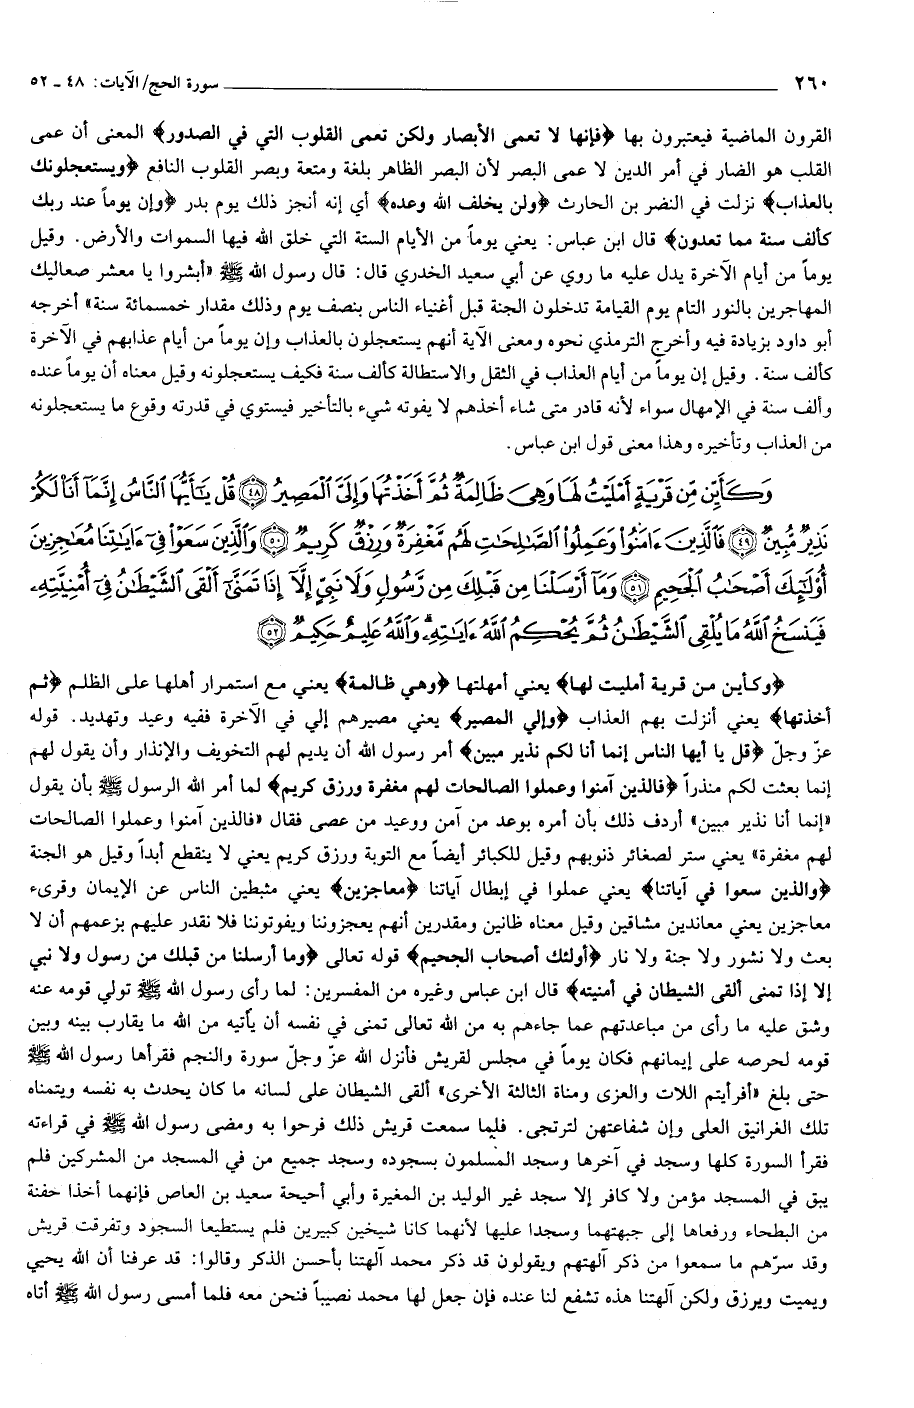 ٢٦٠ سورة الحج/ الآيات: ٤٨ ـ ٥٢
القرون الماضية فيعتبرون بها ﴿فإنها لا تعمى الأبصار ولكن تعمى القلوب التي في الصدور﴾ المعنى أن عمى
القلب هو الضار في أمر الدين لا عمى البصر لأن البصر الظاهر بلغة ومتعة وبصر القلوب النافع ﴿ويستعجلونك
بالعذاب﴾ نزلت في النضر بن الحارث ﴿ولن يخلف الله وعده﴾ أي إنه أنجز ذلك يوم بدر ﴿وإن يوماً عند ربك
كألف سنة مما تعدون﴾ قال ابن عباس: يعني يوماً من الأيام الستة التي خلق الله فيها السموات والأرض. وقيل
يوماً من أيام الآخرة يدل عليه ما روي عن أبي سعيد الخدري قال: قال رسول الله ﷺ «أبشروا يا معشر صعاليك
المهاجرين بالنور التام يوم القيامة تدخلون الجنة قبل أغنياء الناس بنصف يوم وذلك مقدار خمسمائة سنة» أخرجه
أبو داود بزيادة فيه وأخرج الترمذي نحوه ومعنى الآية أنهم يستعجلون بالعذاب وإن يوماً من أيام عذابهم في الآخرة
كألف سنة. وقيل إن يوماً من أيام العذاب في الثقل والاستطالة كألف سنة فكيف يستعجلونه وقيل معناه أن يوماً عنده
وألف سنة في الإمهال سواء لأنه قادر متى شاء أخذهم لا يفوته شيء بالتأخير فيستوي في قدرته وقوع ما يستعجلونه
من العذاب وتأخيره وهذا معنى قول ابن عباس.
وَكَأَيِّن مِّن قَرْيَةٍ أَمْلَيْتُ لَهَا وَهِىَ ظَالِمَةٌ ثُمَّ أَخَذْتُهَا وَإِلَىَّ ٱلْمَصِيرُ ﴿٤٨﴾ قُلْ يَٰٓأَيُّهَا ٱلنَّاسُ إِنَّمَآ أَنَا۠ لَكُمْ
نَذِيرٌ مُّبِينٌ ﴿٤٩﴾ فَٱلَّذِينَ ءَامَنُوا۟ وَعَمِلُوا۟ ٱلصَّٰلِحَٰتِ لَهُم مَّغْفِرَةٌ وَرِزْقٌ كَرِيمٌ ﴿٥٠﴾ وَٱلَّذِينَ سَعَوْا۟ فِىٓ ءَايَٰتِنَا مُعَٰجِزِينَ
أُو۟لَٰٓئِكَ أَصْحَٰبُ ٱلْجَحِيمِ ﴿٥١﴾ وَمَآ أَرْسَلْنَا مِن قَبْلِكَ مِن رَّسُولٍ وَلَا نَبِىٍّ إِلَّآ إِذَا تَمَنَّىٰٓ أَلْقَى ٱلشَّيْطَٰنُ فِىٓ أُمْنِيَّتِهِۦ
فَيَنسَخُ ٱللَّهُ مَا يُلْقِى ٱلشَّيْطَٰنُ ثُمَّ يُحْكِمُ ٱللَّهُ ءَايَٰتِهِۦ ۗ وَٱللَّهُ عَلِيمٌ حَكِيمٌ ﴿٥٢﴾
﴿وكأين من قرية أمليت لها﴾ يعني أمهلتها ﴿وهي ظالمة﴾ يعني مع استمرار أهلها على الظلم ﴿ثم
أخذتها﴾ يعني أنزلت بهم العذاب ﴿وإلي المصير﴾ يعني مصيرهم إلي في الآخرة ففيه وعيد وتهديد. قوله
عزّ وجلّ ﴿قل يا أيها الناس إنما أنا لكم نذير مبين﴾ أمر رسول الله أن يديم لهم التخويف والإنذار وأن يقول لهم
إنما بعثت لكم منذراً ﴿فالذين آمنوا وعملوا الصالحات لهم مغفرة ورزق كريم﴾ لما أمر الله الرسول ﷺ بأن يقول
«إنما أنا نذير مبين» أردف ذلك بأن أمره بوعد من آمن ووعيد من عصى فقال «فالذين آمنوا وعملوا الصالحات
لهم مغفرة» يعني ستر لصغائر ذنوبهم وقيل للكبائر أيضاً مع التوبة ورزق كريم يعني لا ينقطع أبداً وقيل هو الجنة
﴿والذين سعوا في آياتنا﴾ يعني عملوا في إبطال آياتنا ﴿معاجزين﴾ يعني مثبطين الناس عن الإيمان وقرىء
معاجزين يعني معاندين مشاقين وقيل معناه ظانين ومقدرين أنهم يعجزوننا ويفوتوننا فلا نقدر عليهم بزعمهم أن لا
بعث ولا نشور ولا جنة ولا نار ﴿أولئك أصحاب الجحيم﴾ قوله تعالى ﴿وما أرسلنا من قبلك من رسول ولا نبي
إلا إذا تمنى ألقى الشيطان في أمنيته﴾ قال ابن عباس وغيره من المفسرين: لما رأى رسول الله ﷺ تولي قومه عنه
وشق عليه ما رأى من مباعدتهم عما جاءهم به من الله تعالى تمنى في نفسه أن يأتيه من الله ما يقارب بينه وبين
قومه لحرصه على إيمانهم فكان يوماً في مجلس لقريش فأنزل الله عزّ وجلّ سورة والنجم فقرأها رسول الله ﷺ
حتى بلغ «أفرأيتم اللات والعزى ومناة الثالثة الأخرى» ألقى الشيطان على لسانه ما كان يحدث به نفسه ويتمناه
تلك الغرانيق العلى وإن شفاعتهن لترتجى. فلما سمعت قريش ذلك فرحوا به ومضى رسول الله ﷺ في قراءته
فقرأ السورة كلها وسجد في آخرها وسجد المسلمون بسجوده وسجد جميع من في المسجد من المشركين فلم
يبق في المسجد مؤمن ولا كافر إلا سجد غير الوليد بن المغيرة وأبي أحيحة سعيد بن العاص فإنهما أخذا حفنة
من البطحاء ورفعاها إلى جبهتهما وسجدا عليها لأنهما كانا شيخين كبيرين فلم يستطيعا السجود وتفرقت قريش
وقد سرّهم ما سمعوا من ذكر آلهتهم ويقولون قد ذكر محمد آلهتنا بأحسن الذكر وقالوا: قد عرفنا أن الله يحيي
ويميت ويرزق ولكن آلهتنا هذه تشفع لنا عنده فإن جعل لها محمد نصيباً فنحن معه فلما أمسى رسول الله ﷺ أتاه